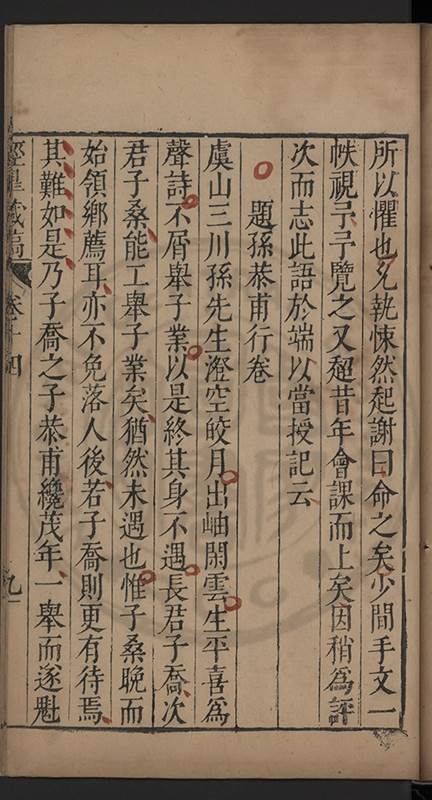 所以懼也允執悚然起謝曰命之矣少間手文一
帙視予予覽之又超昔年會課而上矣因稍為評
次而志此語於端以當授記云
題孫恭甫行卷
虞山三川孫先生澄空皎月出岫閒雲生平喜為
聲詩不屑舉子業以是終其身不遇長君子喬次
君子桑能工舉子業矣猶然未遇也惟子桑晚而
始領鄉薦耳亦不免落人後若子喬則更有待焉
其難如是乃子喬之子恭甫纔茂年一舉而遂魁
卷十四
九